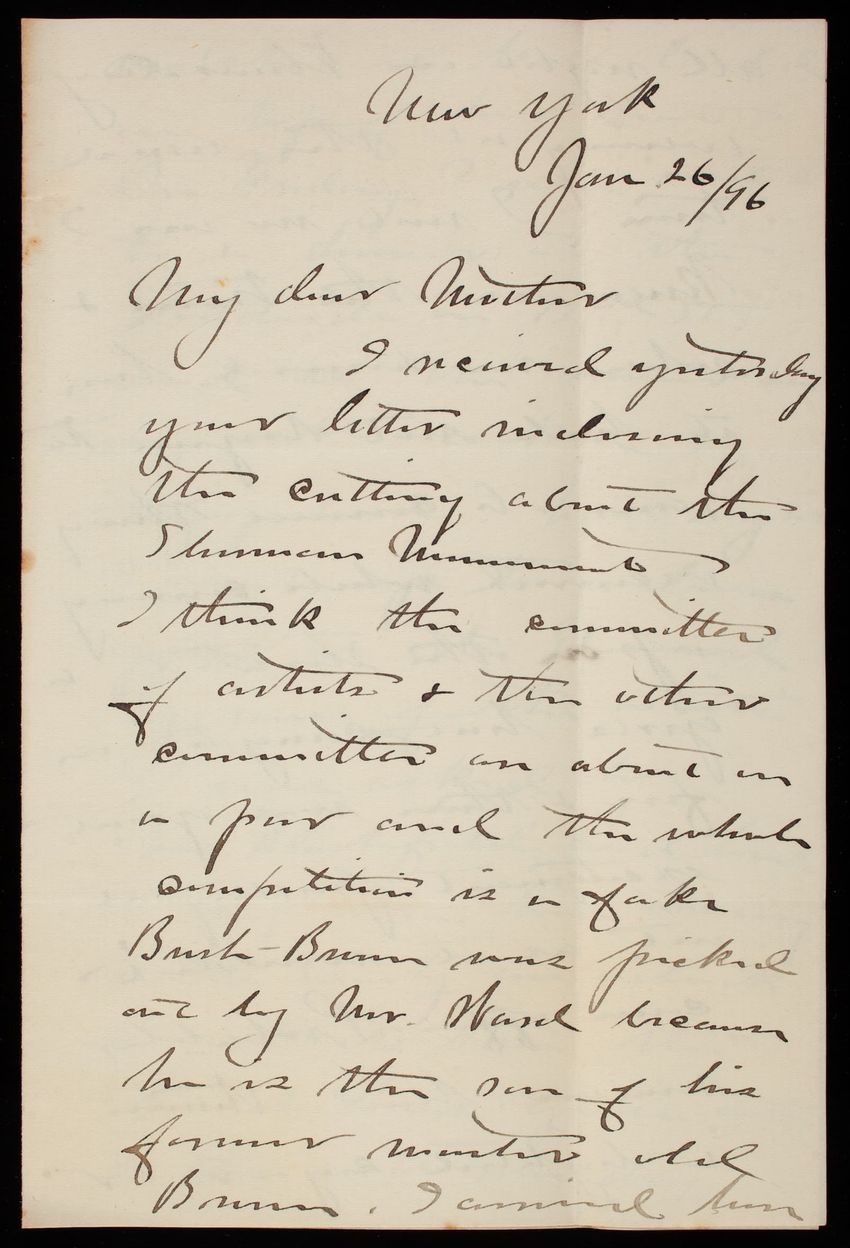 New York
Jan 26/96
My dear Mother
I received yesterday
your letter inclosing
the cutting about the
Sherman Monument
I think the committee
of artists & the other
committee are about on
a par and the whole
competition is a fake
Bush-Brown was picked
out by Mr. Ward because
he is the son of his
former master old
Brown. I arrived here